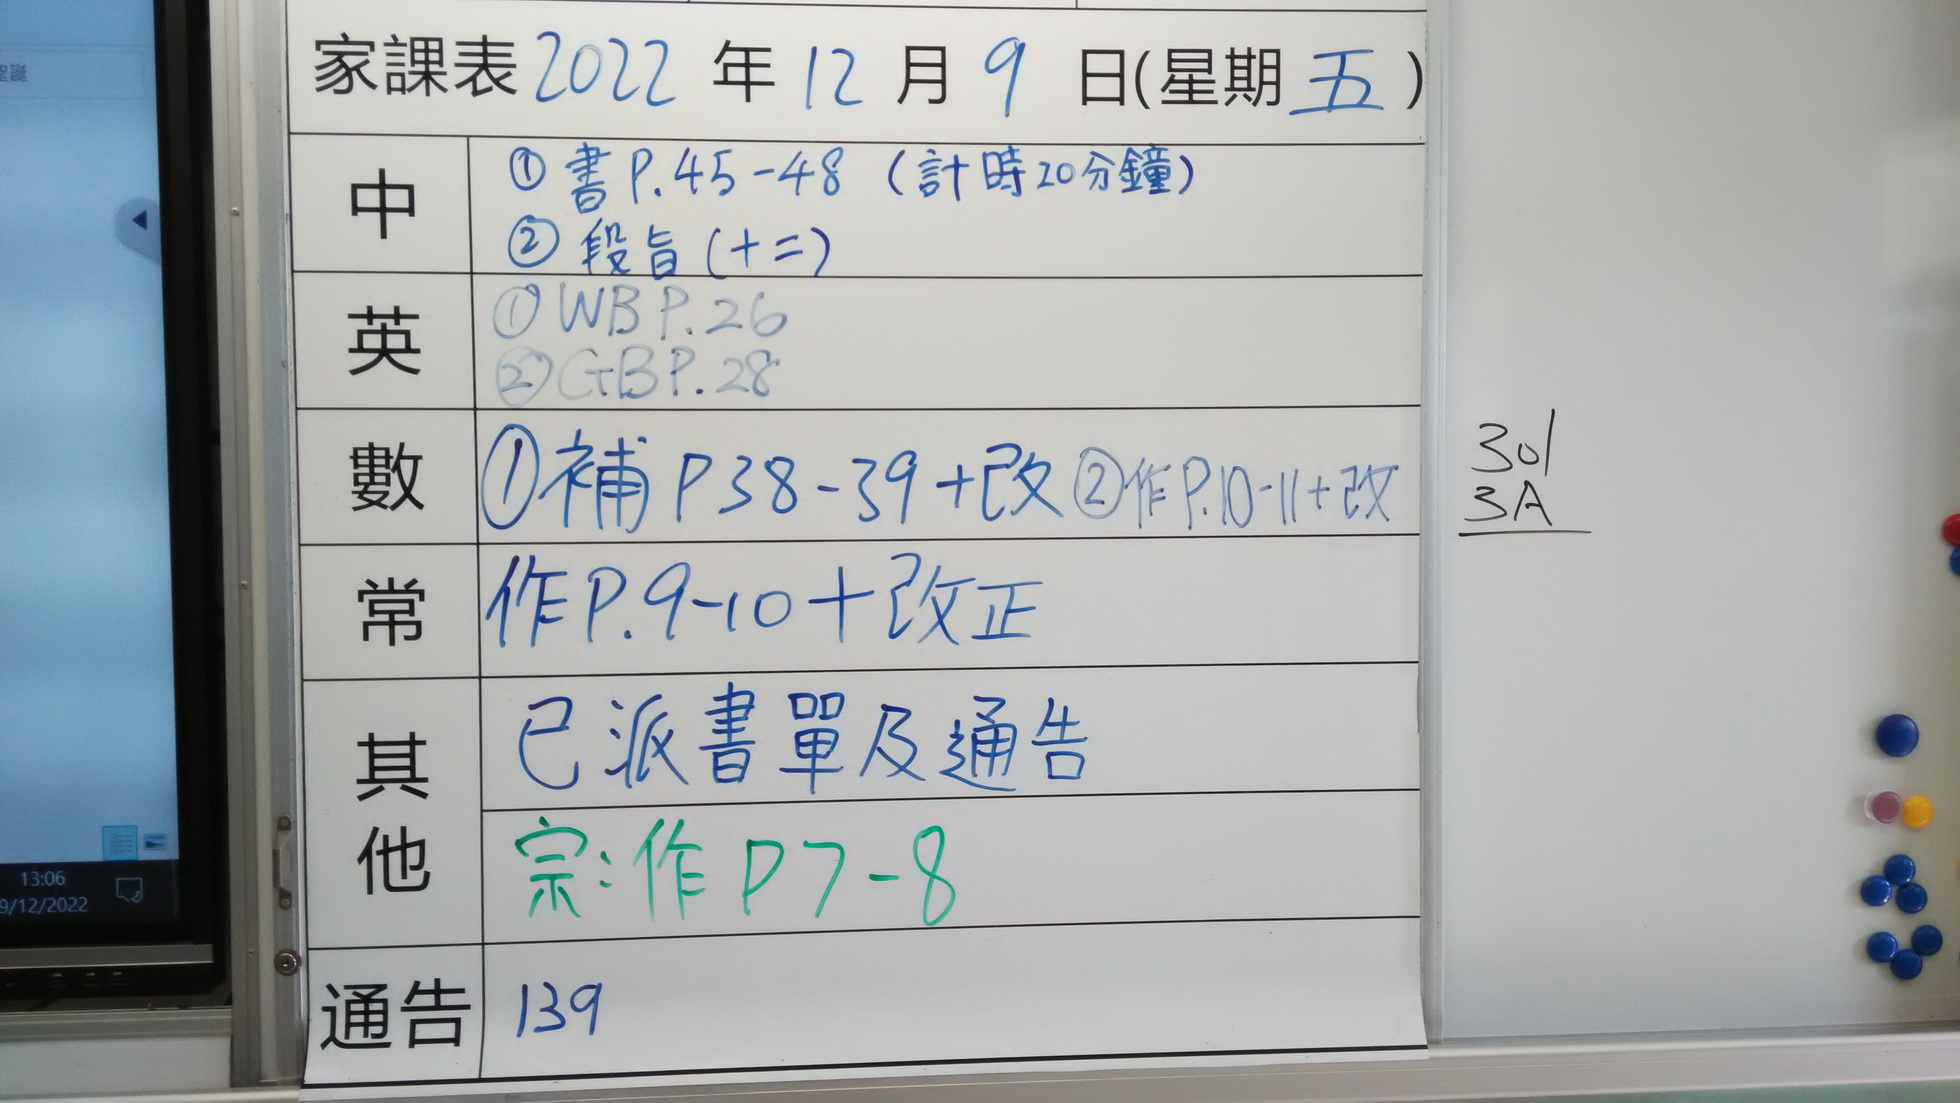 聖誕
家課表 2022 年 12 月 9 日(星期 五 )
中
① 書 P.45-48 (計時20分鐘)
② 段旨 (十二)
英
① WB P.26
② GB P.28
數
① 補 P38-39+改 ② 作P.10-11+改
常
作P.9-10+改正
其他
已派書單及通告
宗:作 P7-8
通告
139
301
3A
13:06
9/12/2022